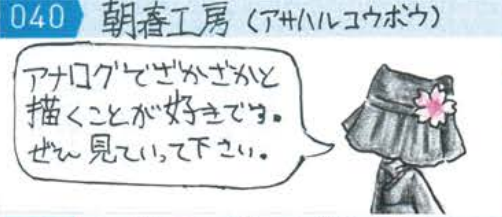 040 朝春工房（アサハルコウボウ）
アナログでざかざかと
描くことが好きです。
ぜひ見ていって下さい。